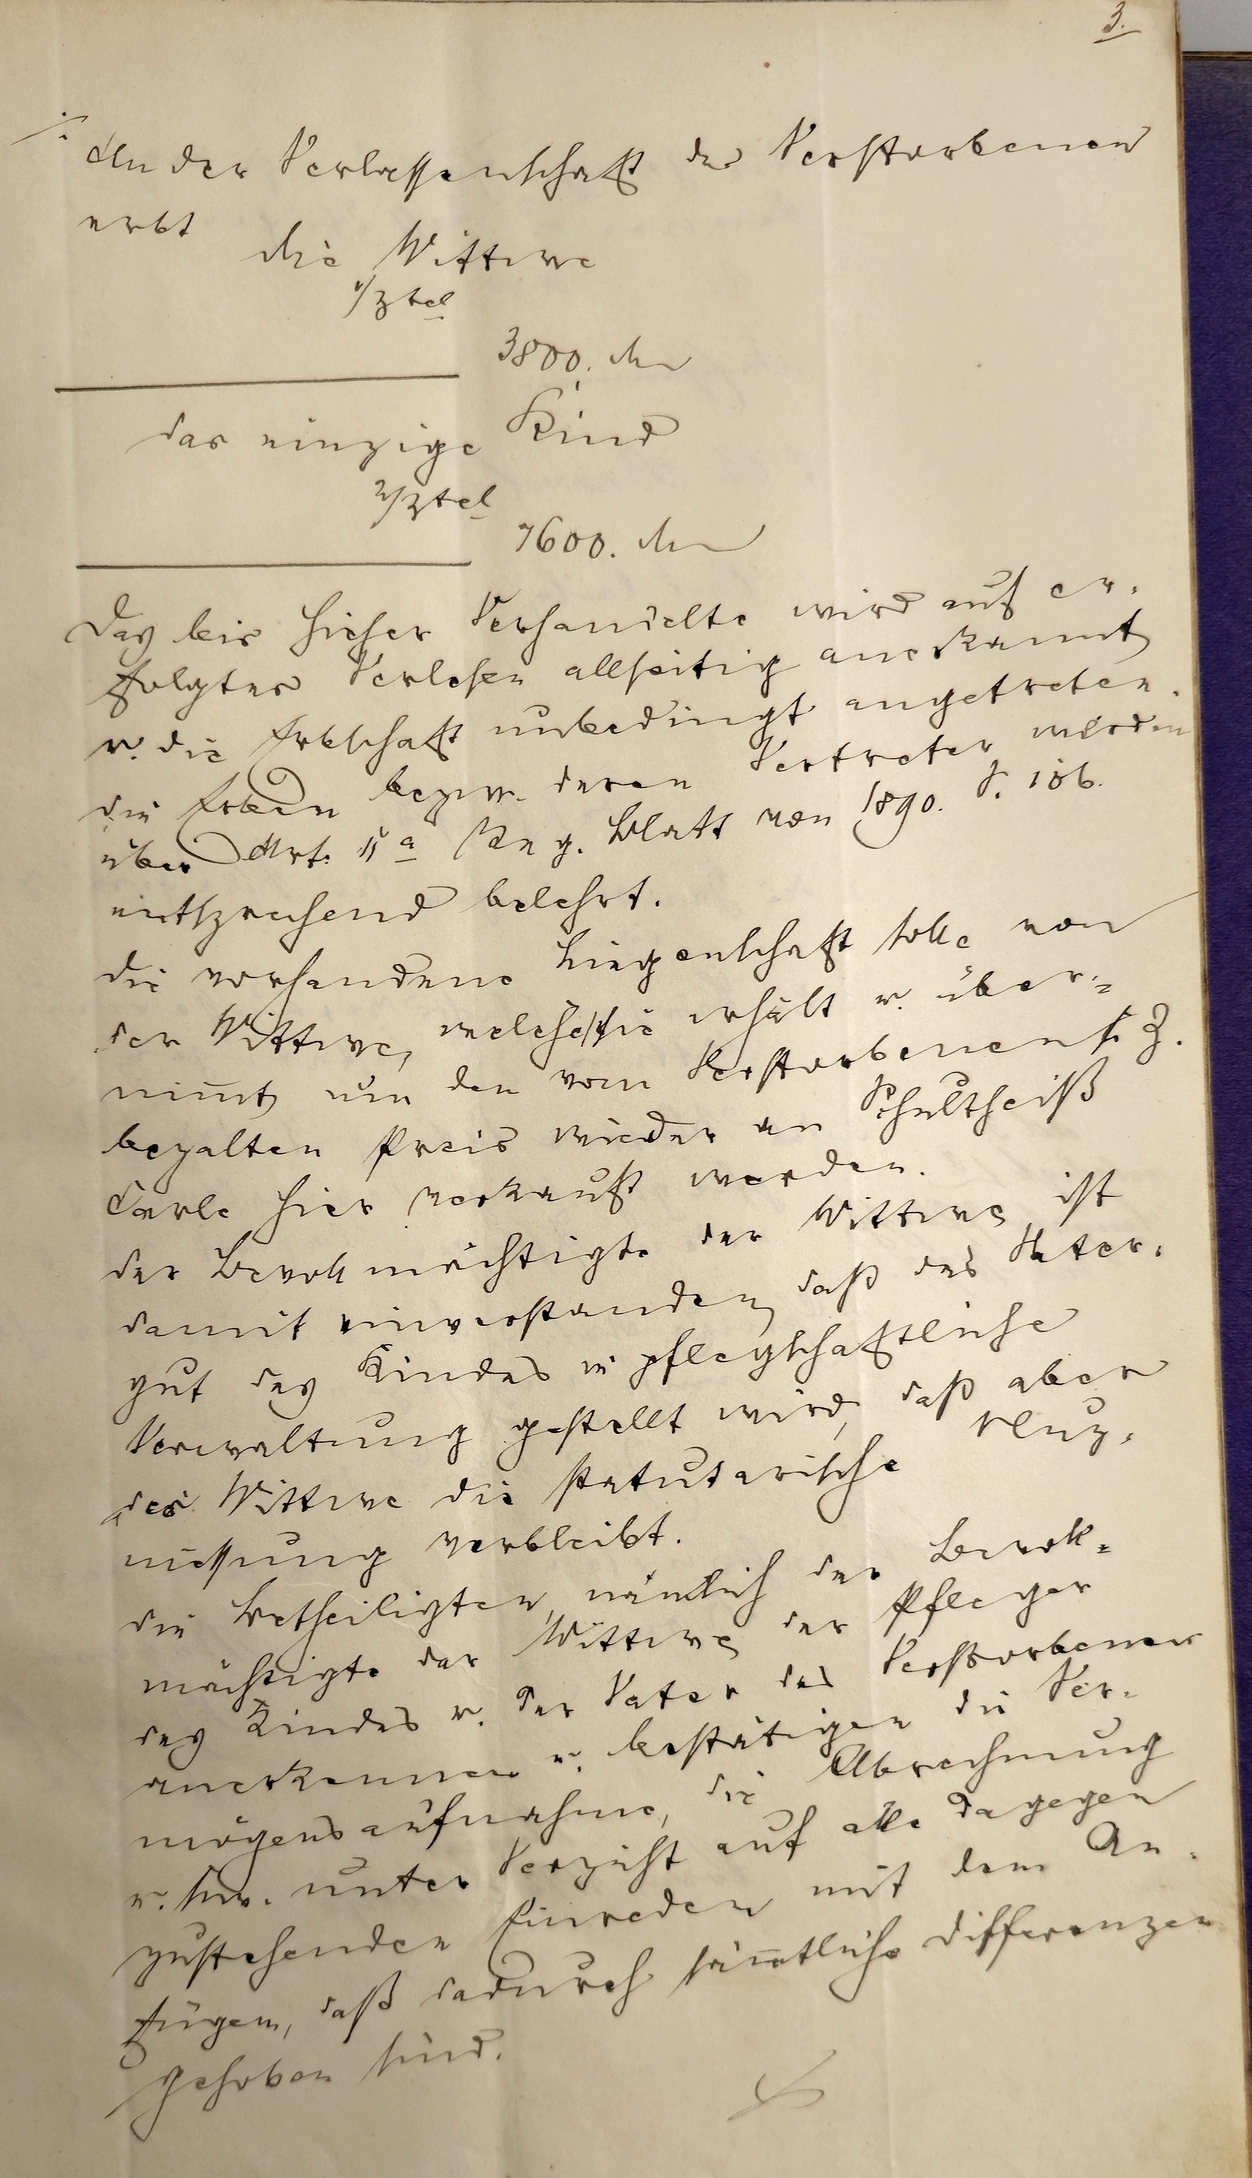 3.
An der Verlassenschaft des Verstorbenen
erbt
die Wittwe
1/3tel
3800. M
das einzige Kind
2/3tel
7600. M
Das bis hieher Verhandelte wird auf er-
folgtes Verlesen allseitig anerkannt
u. die Erbschaft unbedingt angetreten.
die Erben bezw. deren Vertreter werden
über Art. 11 a Reg. Blatt von 1890. S. 106.
entsprechend belehrt.
die vorhandene Liegenschaft solle von
der Wittwe, welche sie erhält u. über-
nimt um den vom Verstorbenen s. Z.
bezalten Preis wieder an Schultheiß
Carle hier verkauft werden.
der Bevollmächtigte der Wittwe ist
damit einverstanden, daß das Vater-
gut des Kindes in pflegschaftliche
Verwaltung gestellt wird, daß aber
der Wittwe die statutarische Nuz-
niessung verbleibt.
die Betheiligten, nämlich der Bevoll-
mächtigte der Wittwe, der Pfleger
des Kindes u. der Vater des Verstorbenen
anerkennen u. bestätigen die Ver-
mögensaufnahme, die Abrechnung
u. sw. unter Verzicht auf alle dagegen
zustehenden Einreden mit dem An-
fügen, daß dadurch sämtliche Differenzen
gehoben sind.